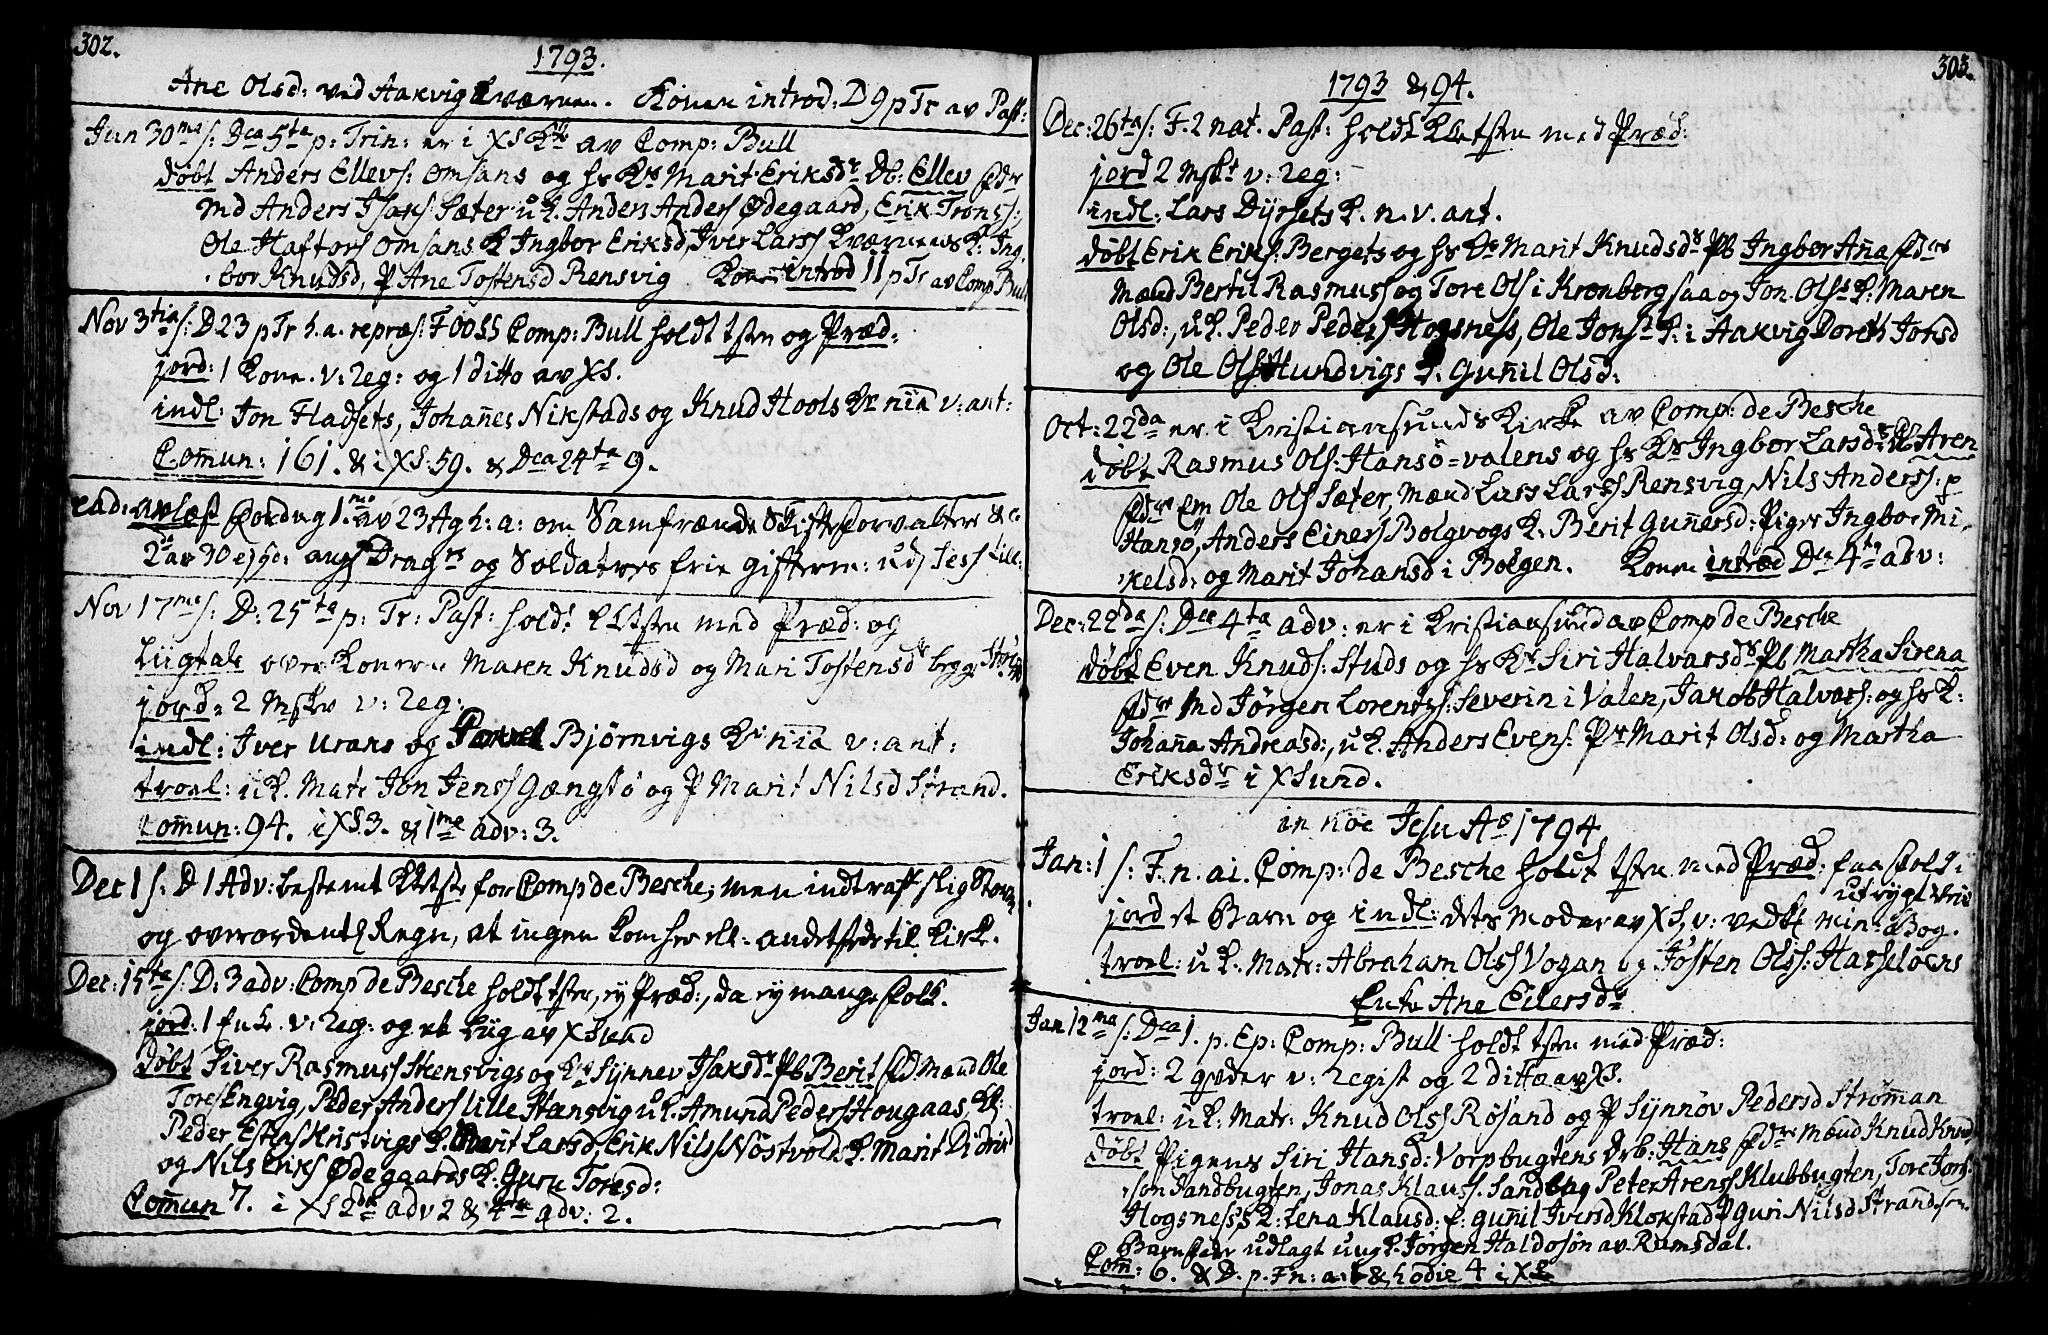 302.
1793.
Ane Olsd: ved Aakvig Kværnen. Konen introd: D 9 p Tr av Past:
Jun 30me s: Dca 5ta p: Trin: er i XS Kke av Comp: Bull
døbt Anders Ellevs: Omsans og hs Ks Marit Eriksdr Db: Ellev Fdr
Md Anders Isaks Sæter u K. Anders Anders Ødegaard, Erik Trons:
Ole Haftors Omsans K Ingbor Eriksd, Iver Larss Kværnens K: Ing,
bor Knudsd, P Ane Tostensd Rensvig. Kone introd 11 p Tr av Comp Bull
Nov 3tia s: D 23 p Tr h. a. repræs: F OOSS Comp: Bull holdt tsten og Præd:
jord: 1 Kone. v: Reg: og 1 ditto av XS.
indl: Jon Fladsets, Johannes Nikstads og Knud Hools Kr nia v: ant:
Commun: 161. & i XS. 59. & Dca 24ta 9.
ead: avlæst Fordng 1. mo av 23 Ag h: a: om Samfrænde Skifteforvaltere &c
2do av 30 ejsd: ang Dragrs og Soldaters frie gifterm: ud Sess till:
Nov 17mes: D: 25ta p: Tr: Past: holdt Kktsten med Præd: og
Liigtale over Konerne Maren Knudsd og Mari Tostensdr begge
jord: 2 Mskr v: Reg:
indl: Iver Urans og Bjørnvigs Kr nia v: ant:
troel: u K. Matr Jon Jenss Gængstø og P Marit Nilsd Strand.
Commun: 94. i XS. 3. & 1me adv: 3.
Dec 1 s: D 1 Adv: bestemt Kktste for Comp de Besche; men indtraff slig Storm
og overordentl Regn, at ingen Kom her ell: andetsteds til Kirke.
Dec: 15ta s: D: 3 adv: Comp de Besche holdt tsten, ej Præd:, da ej mange Folk.
jord: 1 Enke. v: Reg: og et Liig av XSund
døbt Siver Rasmuss Steensvigs og Ks Synnev Isaksdr Pb Berit Fd. Mænd Ole
Tores Engvig, Peder Anders Lille Stensvig u K. Amund Peders Hougaas, K:
Peder Estens Kristvigs K. Marit Larsd, Erik Nils Nøstvolds K. Marit Didriksd
og Nils Eriks Ødegaards K: Guru Toresd:
Commun 7. i XS 2da adv 2 & 4ta adv: 2.
303.
1793 & 94.
Dec: 26ta s: F. 2 nat. Past: holdt Kktsten med Præd:
jord 2 Mskr v: Reg:
indl: Lars Dyrsets K. n. v. ant.
døbt Erik Eriks: Bergets og hs Ks Marit Knudsdr Pb Ingbor Anna Fdrs
Mænd Bertil Rasmuss og Tore Ols i Kronbergsaa og Jon. Olss K: Maren
Olsd:, u K. Peder Peders Hogsness, Ole Jons K: i Aakvig Doreth Jonsd
og Ole Ols Hundvigs P: Gunnil Olsd:
Oct: 22da er i Kristiansunds Kirke av Comp: de Besche
døbt Rasmus Ols: Hansø=valens og hs Ks Ingbor Larsds Db Aren
Fdre Em Ole Ols Sæter, Mænd Lass Larss Rensvig, Nils Anderss: p
Hansø, Anders Einers Bolgvogs K: Berit Gunnersd: Piger Ingbor Mi,
kelsd: og Marit Johansd i Bolgen. Konen introd Dca 4ta adv:
Dec: 22da s: Dca 4ta adv: er i Kristiansund av Comp de Besche
døbt Even Knuds: Studs og hs Ks Siri Halvarsdr Pb Martha Sirena
Fdre Md Jørgen Lorentzs: Severin i Valen, Jakob Halvars: og hs K:
Johanna Andreasd:, u K. Anders Evens: Pr Marit Olsd: og Martha
Eriksdr i XSund.
in noe Jesu Ao 1794
Jan: 1 s: F. n. ai. Comp: de Besche holdt tsten med Præd: faa Folk i
utrygt Veir
jord et Barn og indl: dets Moder av XS, v: vedk min: Bog.
troel: u K. Matr: Abraham Olss Vogan og Josten Olss: Hasseløens
Enke Ane Eilersdr
Jan 12ma s: Dca 1. p. Ep: Comp: Bull holdt tsten med Præd:
jord: 2 qvder v: Regist og 2 ditto av XS.
troel: u K: Matr: Knud Olss Røsand og P Synnøv Pedersd Strømman
døbt Pigens Siri Hansd: Vorpbugtens Drb: Hans Fdre Mænd Knud Knud,
son Sandbugten, Jonas Klauss. Sandbug Peter Arenss Klubbugten, Tore Jons
Hogsness K: Lena Klausd: f: Gunnil Iversd Klokstad P Guri Nilsd Strandsen.
Barnefadr udlagt ung K. Jørgen Haldosøn av Ramsdal.
Com: 6. & D. p. Fn: a: 6 & hodie 4 i XS